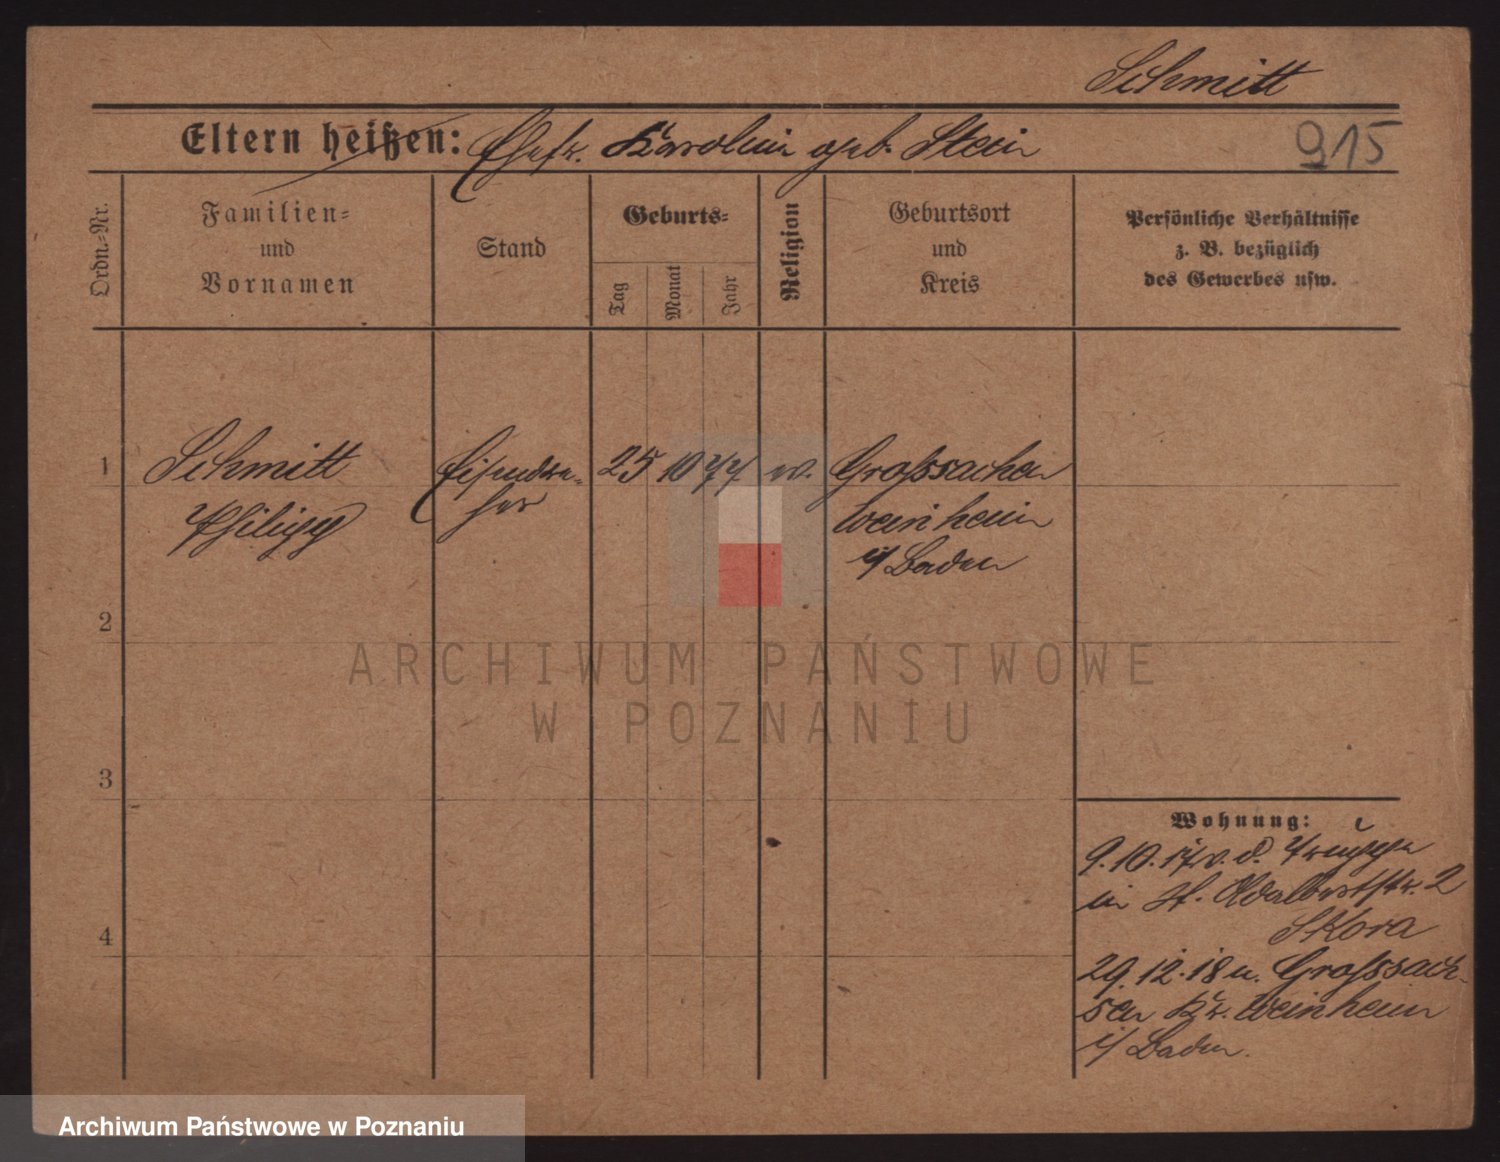 Schmitt
Eltern heißen: Ehefr. Karolin geb. Stein
915
Ordn.-Nr.
Familien-
und
Vornamen
Stand
Geburts-
Tag
Monat
Jahr
Religion
Geburtsort
und
Kreis
Persönliche Verhältnisse
z. B. bezüglich
des Gewerbes usw.
1
Schmitt
Philipp
Eisendre-
her
25 10 77
Großsachsen
Weinheim
i/ Baden
2
3
4
Wohnung:
9.10.17 v. d. Truppe
in St. Adalbertstr. 2
Skora
29.12.18 n. Großsach-
sen Kr. Weinheim
i/ Baden.
ARCHIWUM PAŃSTWOWE
W POZNANIU
Archiwum Państwowe w Poznaniu